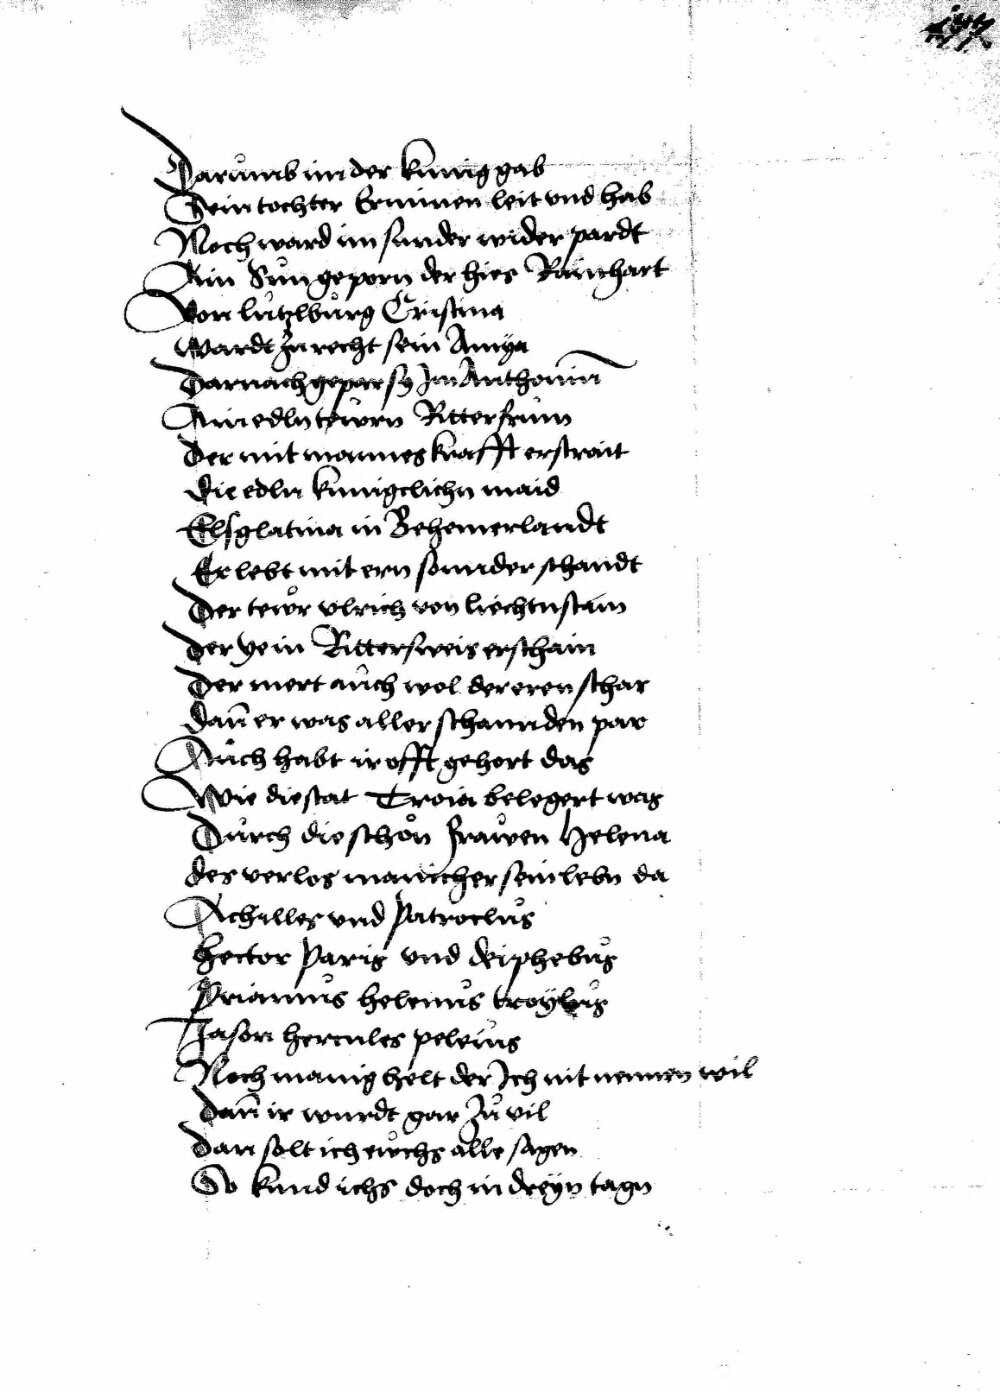 Darumb im der kunig gab
Sein tochter Erminen leit und hab
Noch ward im sunder widerpardt
Ain Sun geporn der hies Rainhart
Von lutzlburg Cristina
Wardt zu recht sein Amya
Darnach gepar sy Im Anthonin
Ain edln tewrn Ritter frum
Der mit mannes krafft erstrait
die edln kunigclichn maid
Elsglatina in Behemerlandt
Er lebt mit ern sonnder schandt
Der tewr ulrich von liechtnstain
Der ye in Ritters weis erschain
Der mert auch wol der eren schar
dan̄ er was aller schannden par
Auch habt ir offt gehort das
Wie die stat Troia belegert was
Durch die schon frawen Helena
des verlos manicher sein lebn da
Achilles und Patroclus
Hector Paris und deiphebus
Priamus helenus troylus
Jason hercules peleius
Noch manig helt der Ich nit nennen wil
dan̄ ir wurdt gar zu vil
dan solt ich ewchs alle sagen
So kund ichs doch in dreyn tagn